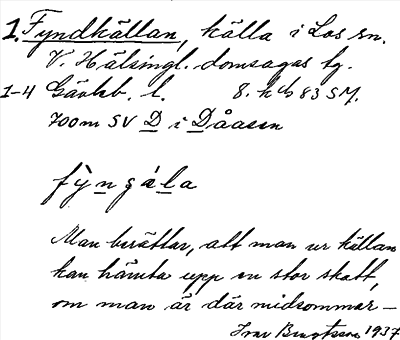 1. Fyndkällan, källa i Los sn.
V. Hälsingl. domsagas tg.
1-4 Gävleb. l. 8. h 83 SM.
700 m SV D i Dåasen
fỳngála
Man berättar, att man ur källan
kan hämta upp en stor skatt,
om man är där midsommar –
Ivar Bengtsson 1937